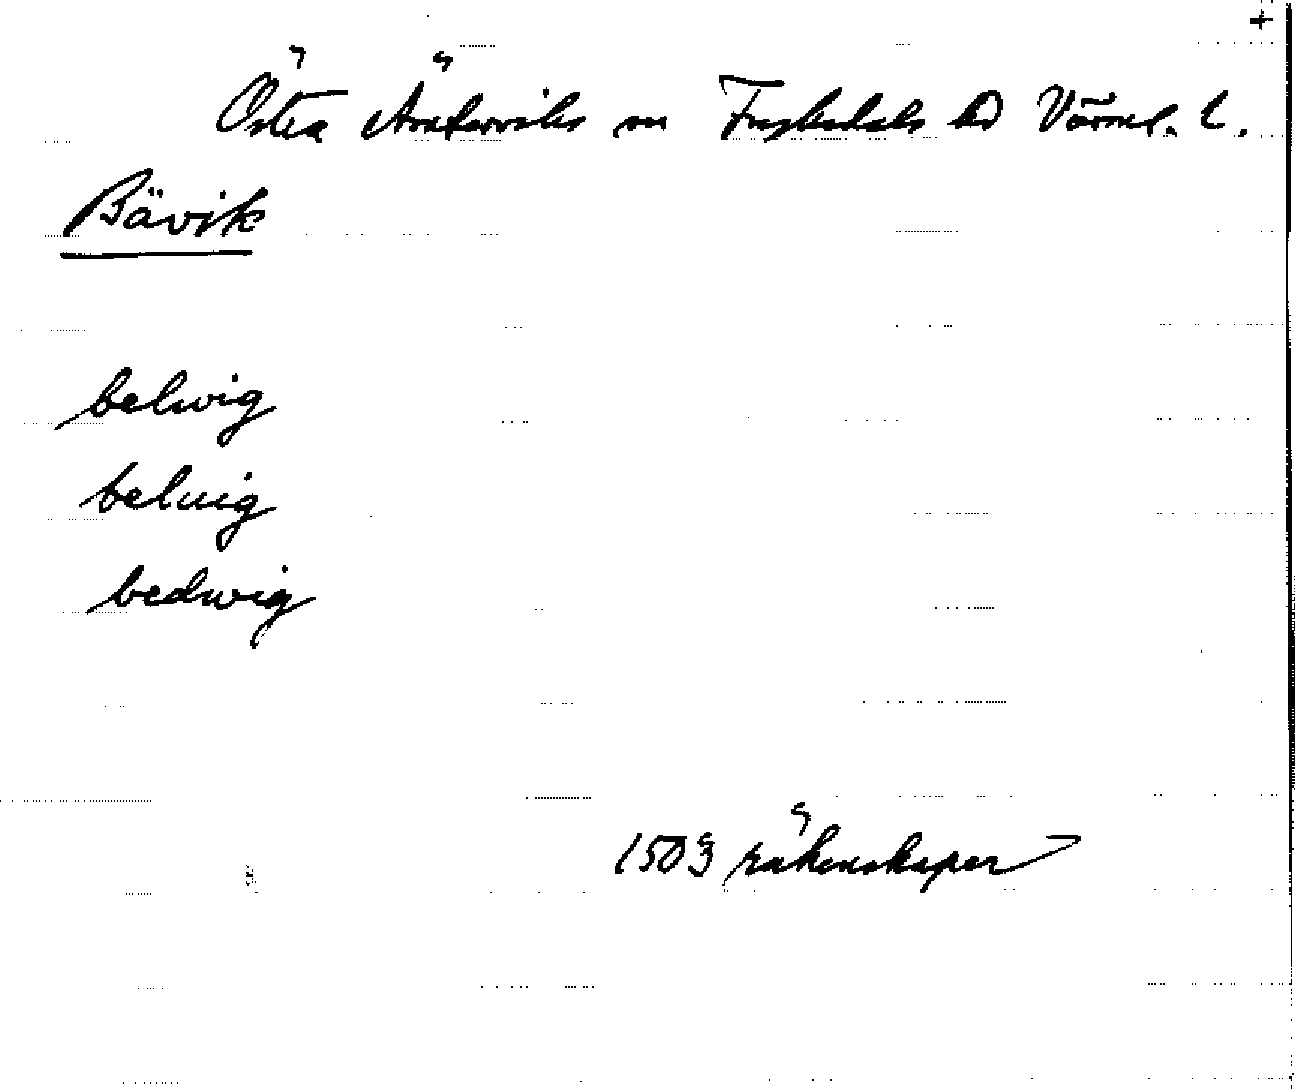 +
Östra Ämterviks sn Fryksdals hd Värml. l.
Bävik
belwig
beluig
bedwig
1503 räkenskaper